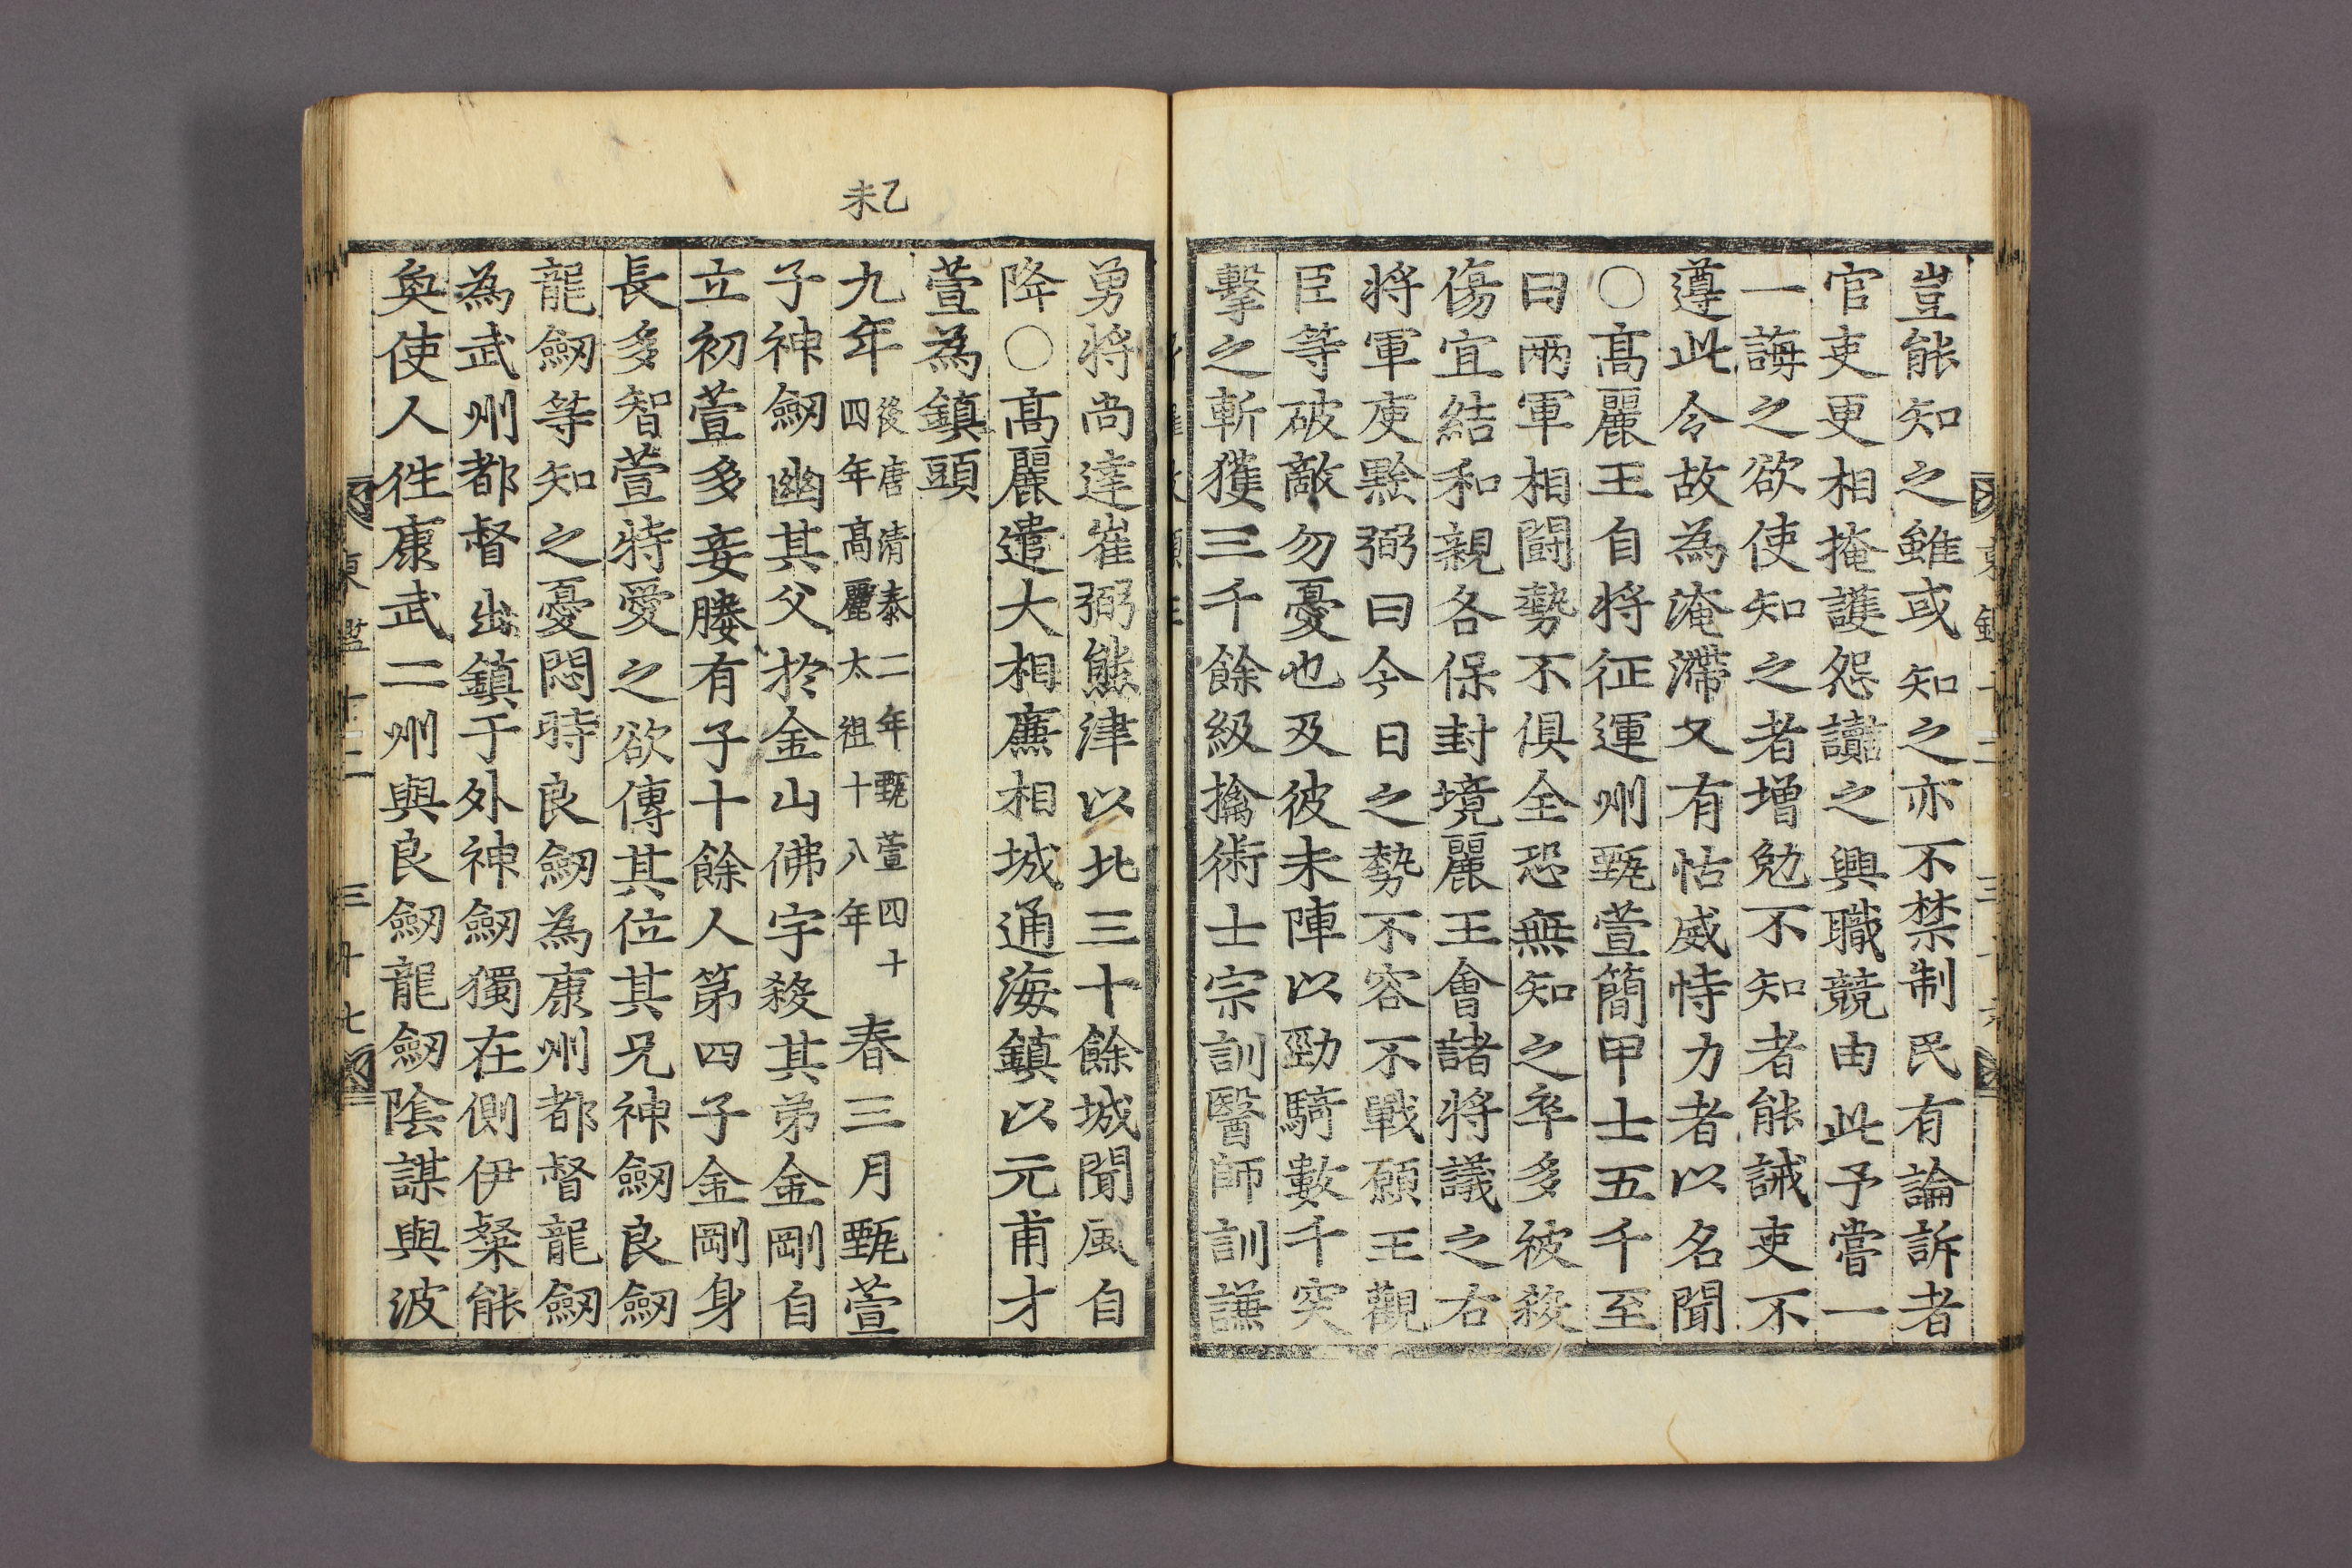 豈能知之雖或知之亦不禁制民有論訴者
官吏更相掩護怨讟之興職競由此予嘗一
一誨之欲使知之者增勉不知者能誡吏不
遵此令故為淹滯又有怙威恃力者以名聞
○髙麗王自将征運州甄萱簡甲士五千至
曰兩軍相鬪勢不俱全恐無知之卒多被殺
傷宜結和親各保封境麗王㑹諸將議之右
將軍庾黔弼曰今日之勢不容不戰願王觀
臣等破敵勿憂也及彼未陣以勁騎數千突
擊之斬獲三千餘級擒術士宗訓醫師訓謙
勇将尚達崔弼熊津以北三十餘城聞風自
降○髙麗遣大相廉相城通海鎮以元甫才
萱為鎮頭
乙未
九年後唐清泰二年甄萱四十四年髙麗太祖十八年春三月甄萱
子神劒幽其父於金山佛宇殺其弟金剛自
立初萱多妾媵有子十餘人第四子金剛身
長多智萱特愛之欲傳其位其兄神劒良劒
龍劒等知之憂悶時良劒為康州都督龍劒
為武州都督出鎮于外神劒獨在側伊粲能
奐使人往康武二州與良劒龍劒陰謀與波
東鑑十二
三十七